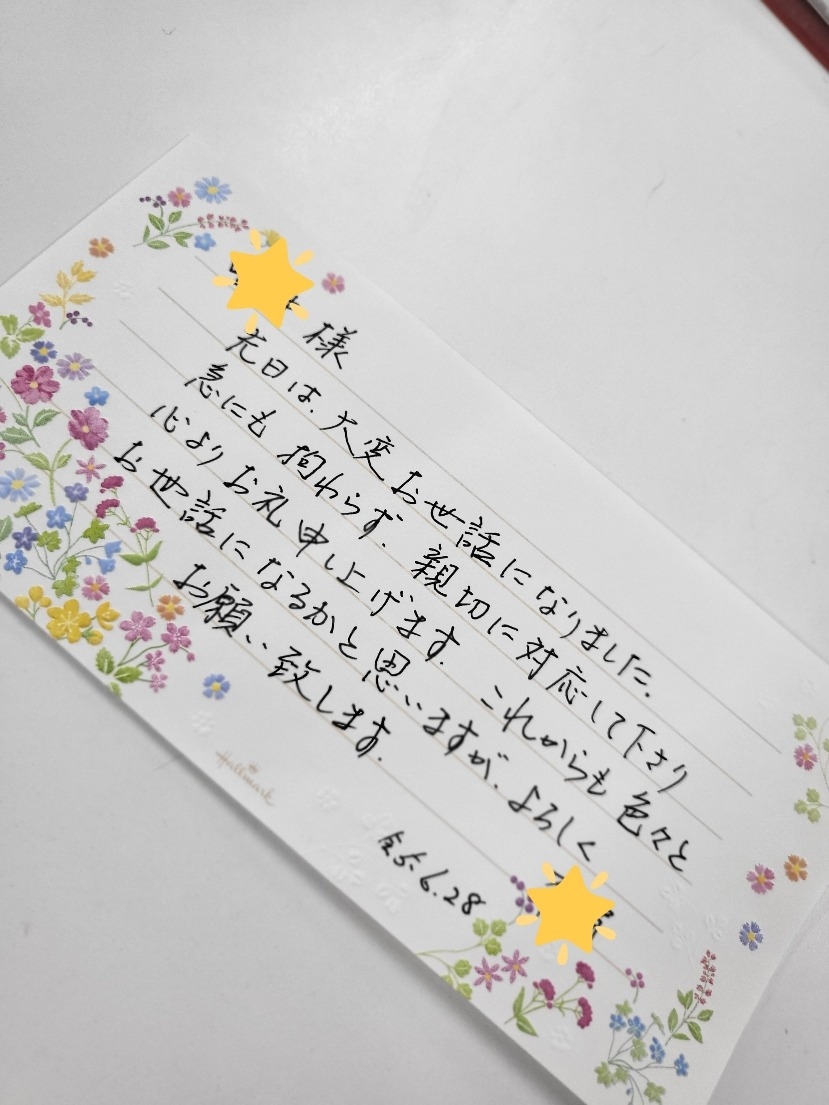 様
先日は、大変お世話になりました。
急にも拘わらず、親切に対応して下さり
心よりお礼申し上げます。これからも色々と
お世話になるかと思いますが、よろしく
お願い致します。
5.6.28
Hallmark